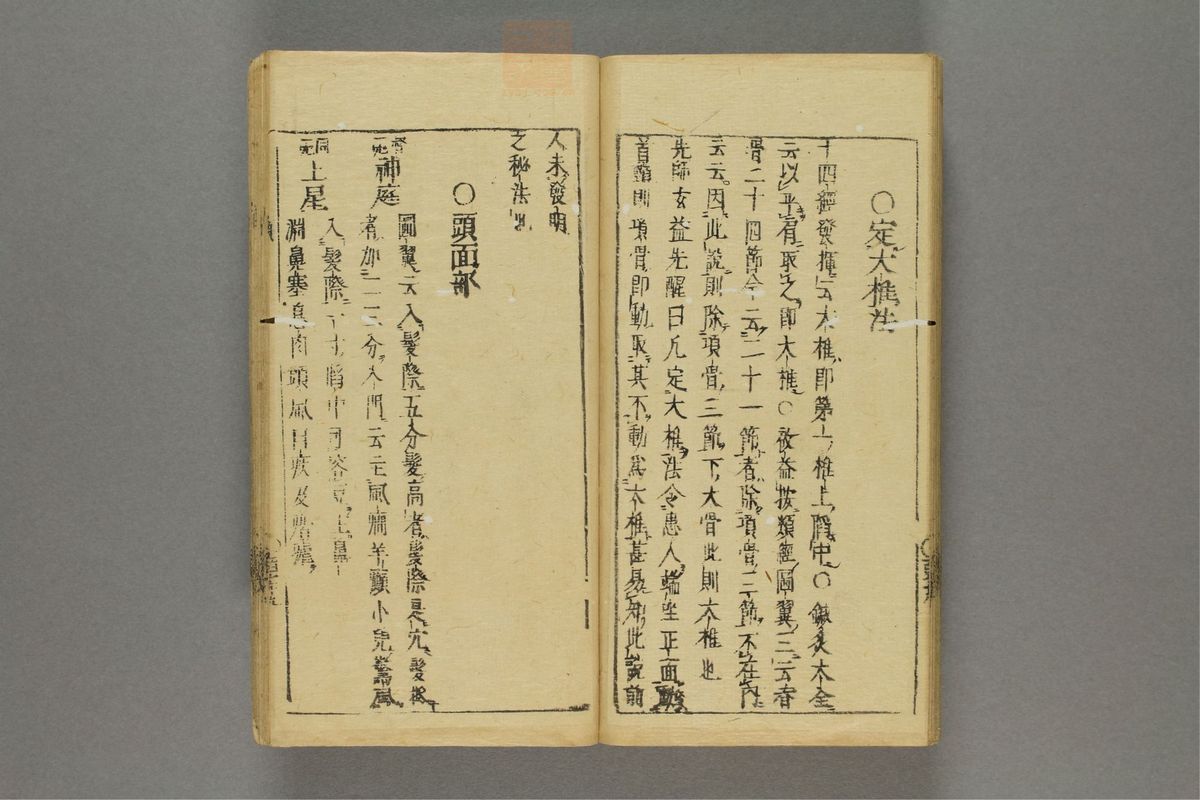 ○定大椎法
十四經發揮云大椎即第一椎上陷中○鍼灸大全
云以平肩取之即大椎○敬益按類經圖翼三云脊
骨二十四節今云二十一節者除項骨三節不在内
云云因此說則除項骨三節下大骨此則大椎也
先師玄益先醒曰凡定大椎法令患人端坐正面
首則項骨即動取其不動為大椎甚易知此説前
人未發明
之秘法也
○頭面部
督一穴神庭 圖翼云入髮際五分髮高者髮際是穴髮低
者加二三分入門云主風癇羊癲小兒風
同一穴上星 入髮際一寸陷中同主鼻
淵鼻塞息肉頭風目疾